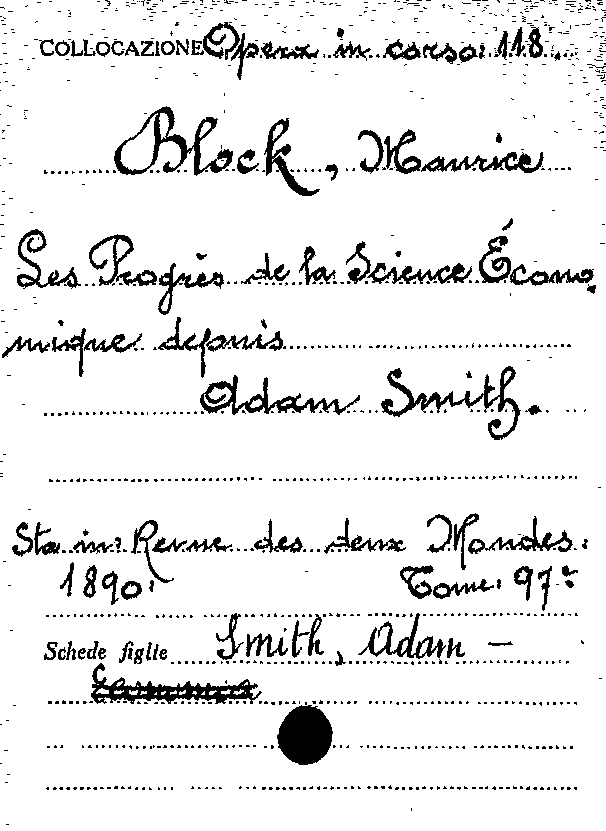 COLLOCAZIONE Opera in corso: 118.
Block, Maurice
Les Progrès de la Science Écono-
mique depuis
Adam Smith.
Sta in: Revue des deux Mondes:
1890: Tome: 97:
Schede figlie Smith, Adam —
Economica